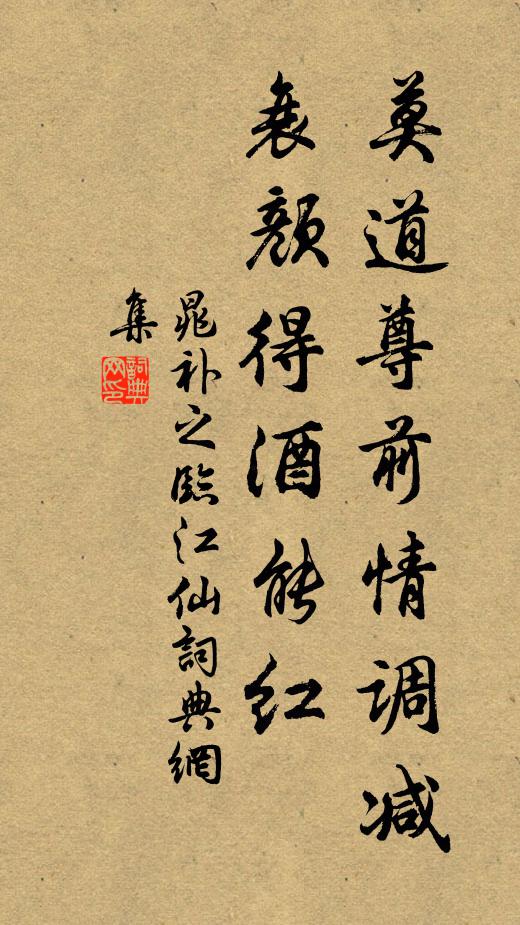 莫道尊前情调减
衰颜得酒能红
晁补之臨江仙詞典網
集
詞典
网印